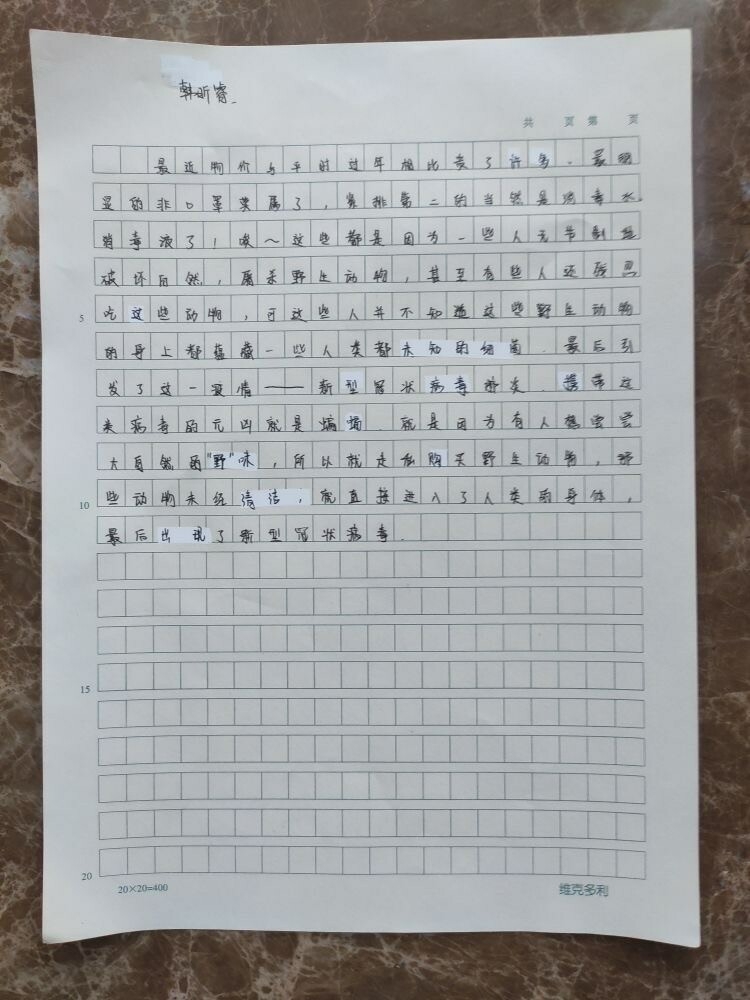 韩昕睿.
共 页 第 页
最近物价与平时过年相比贵了许多.最明
显的非口罩莫属了,紧排第二的当然是消毒水.
消毒液了!唉~这些都是因为一些人无节制地
破坏自然,屠杀野生动物,甚至有些人还残忍
5 吃这些动物,可这些人并不知道这些野生动物
的身上都蕴藏一些人类都未知的细菌.最后引
发了这一疫情——新型冠状病毒肺炎.携带这
来病毒的元凶就是蝙蝠.就是因为有人想尝尝
大自然的"野"味,所以就走私购买野生动物,
10 些动物未经清洁,就直接进入了人类的身体,
最后出现了新型冠状病毒.
15
20
20×20=400 维克多利